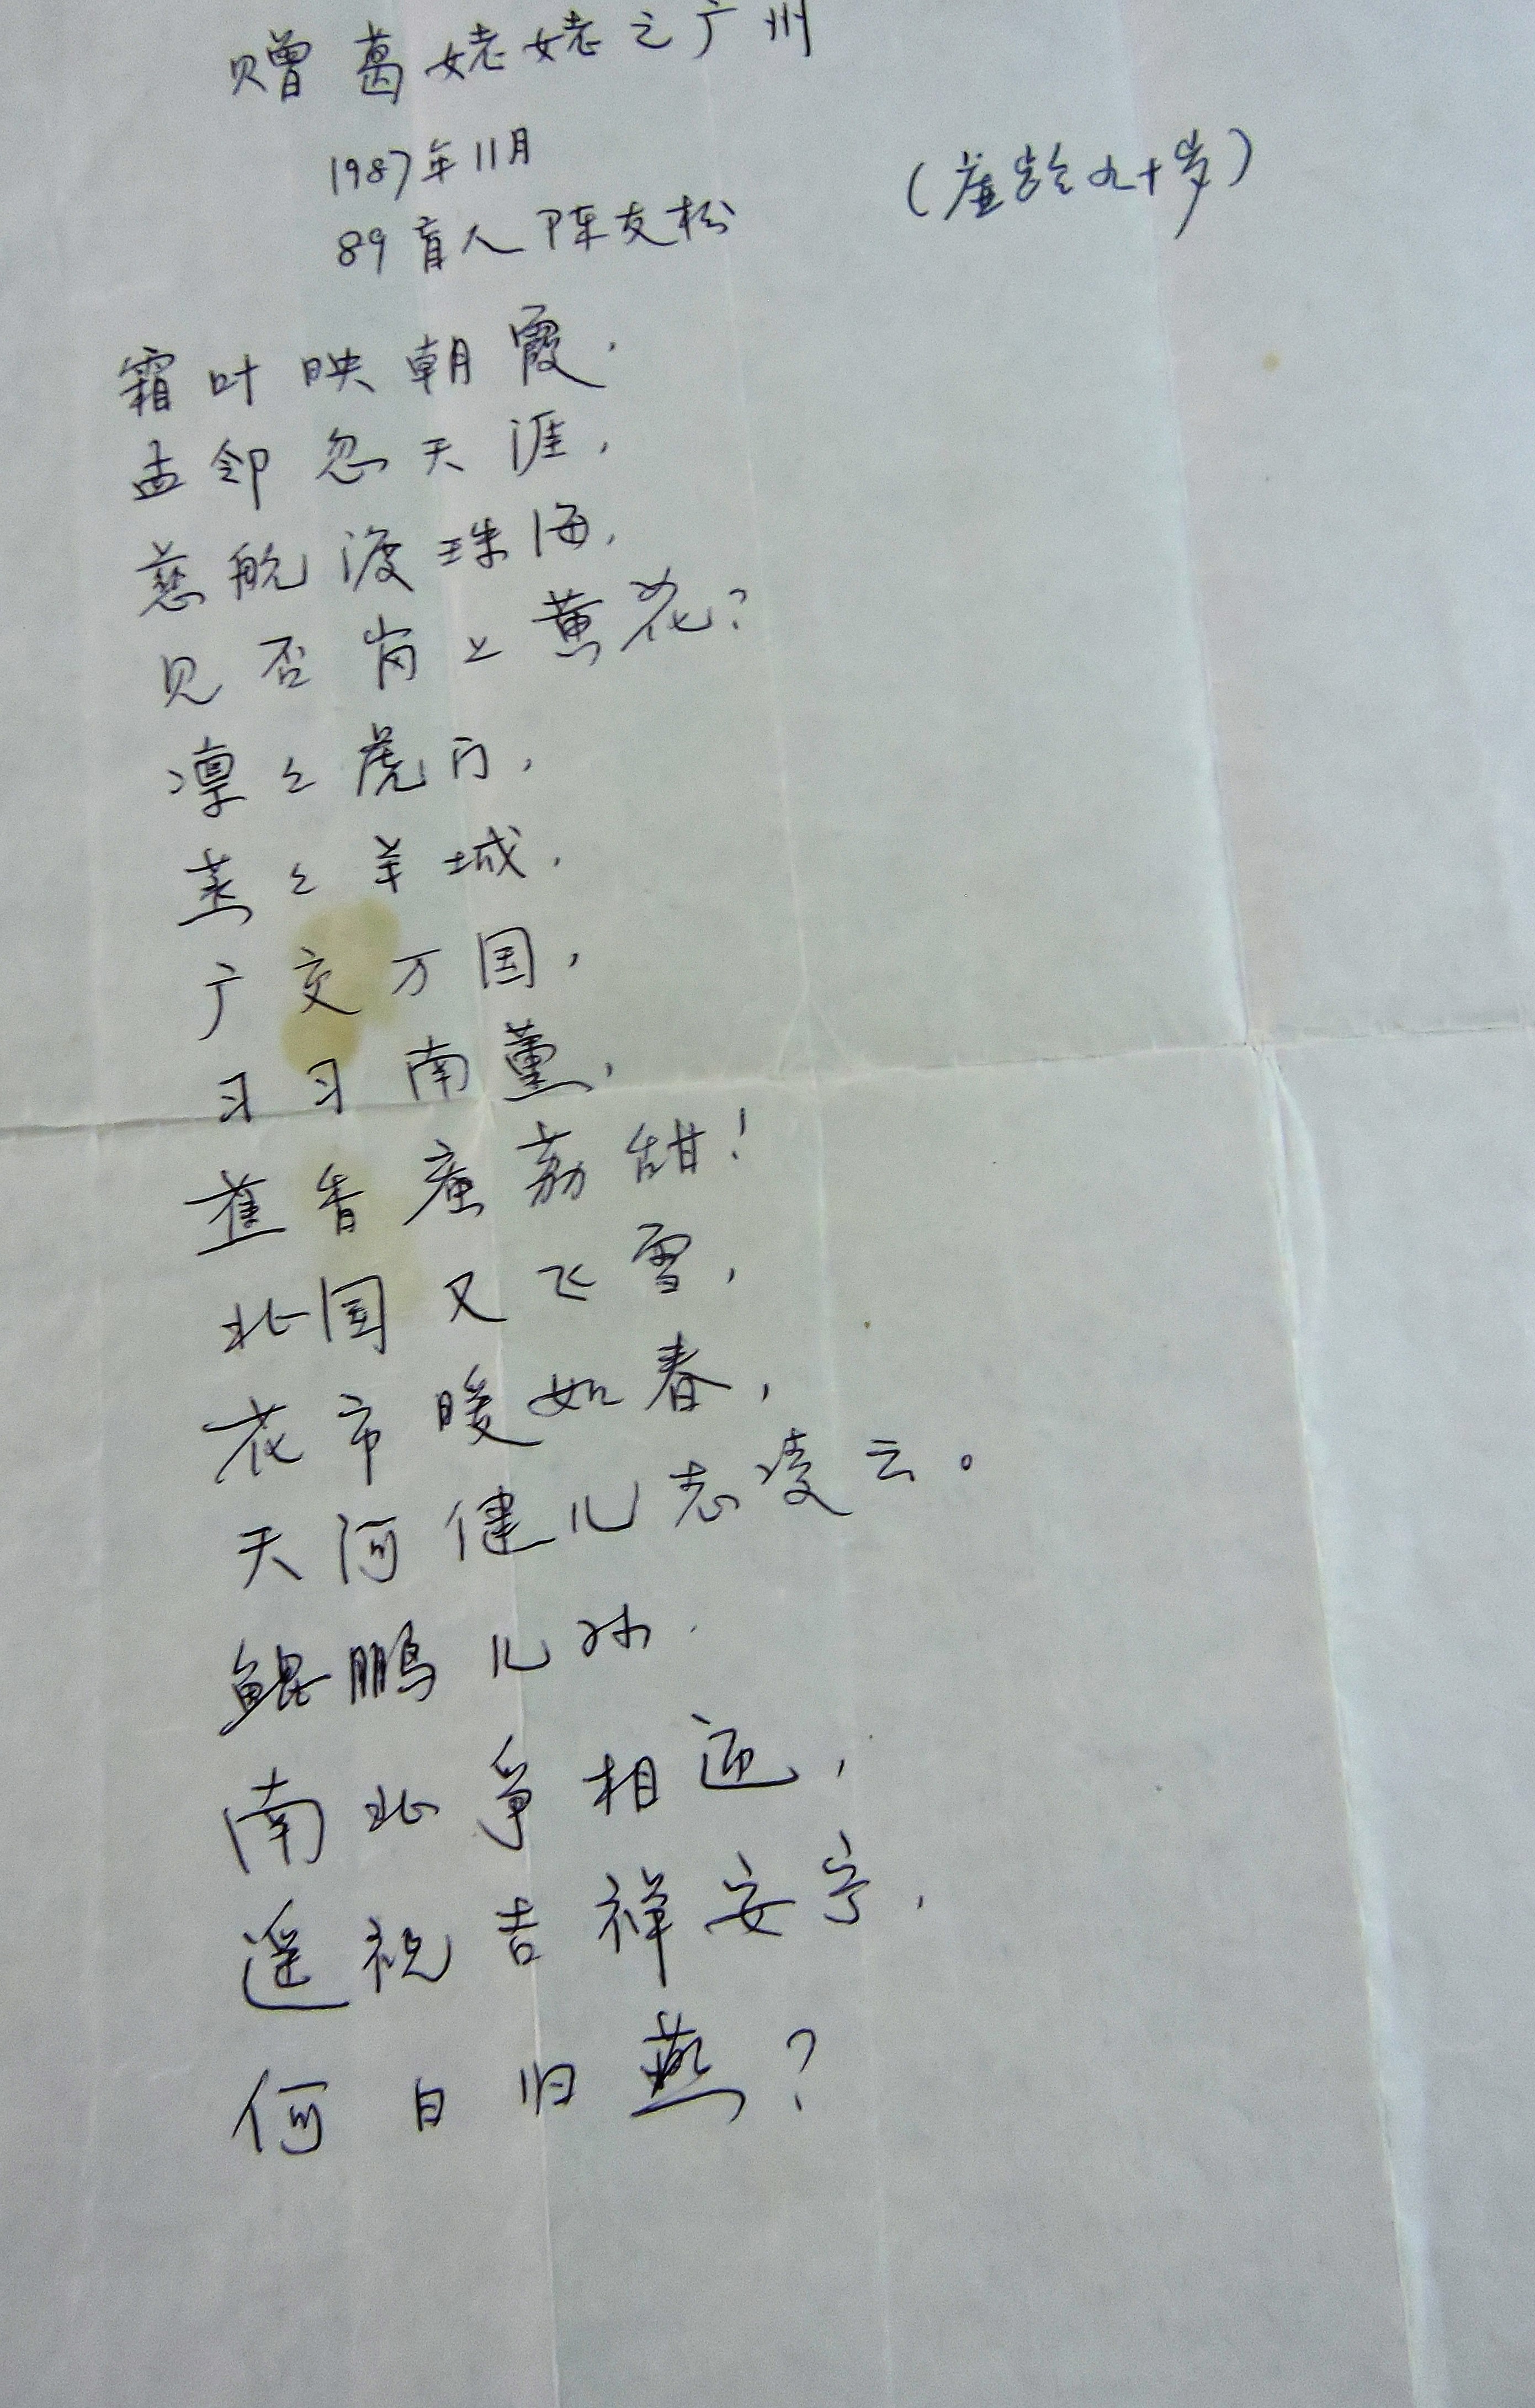 赠葛姥姥之广州
1987年11月
(虚龄九十岁)
89盲人陈友松
霜叶映朝霞,
孟邻忽天涯,
慈航渡珠海,
见否岗上黄花?
凛々虎门,
蒸々羊城,
广交万国,
习习南薰,
蕉香 荔甜!
北国又飞雪,
花市暖如春,
天河健儿志凌云。
鲲鹏儿孙.
南北争相迎,
遥祝吉祥安宁,
何日归燕?